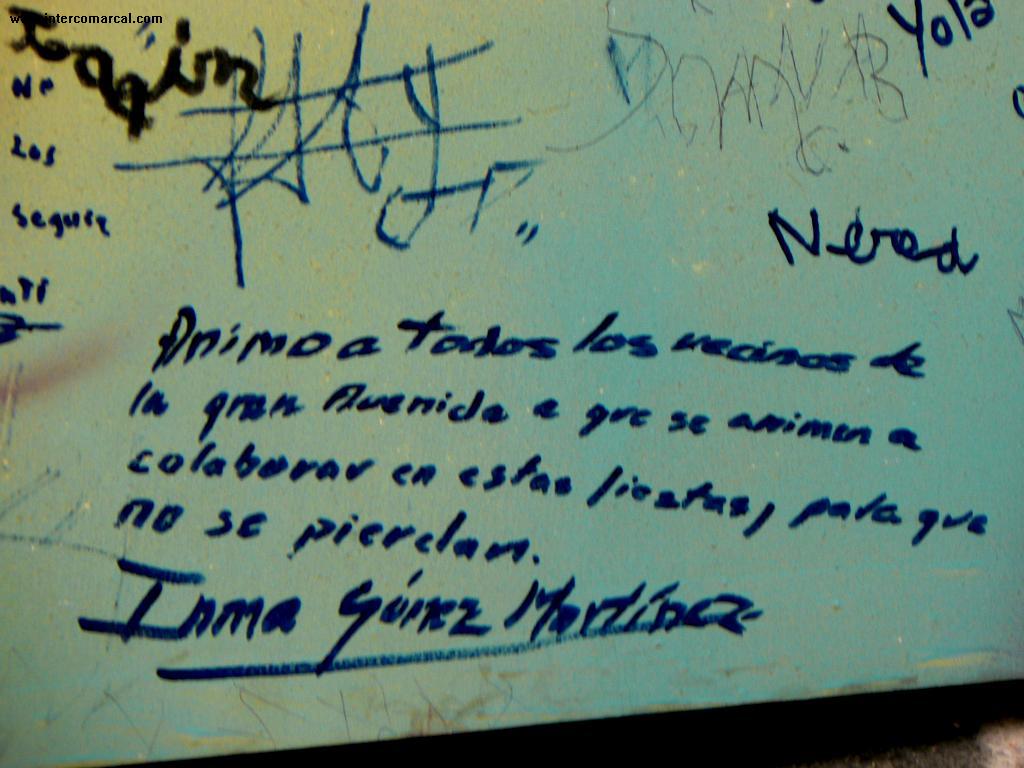 www.intercomarcal.com
Yola
Joaqin
Los
seguir
Nerea
Animo a todos los vecinos de
la gran Avenida a que se animen a
colaborar en estas fiestas, para que
no se pierdan.
Inma Gómez Martínez